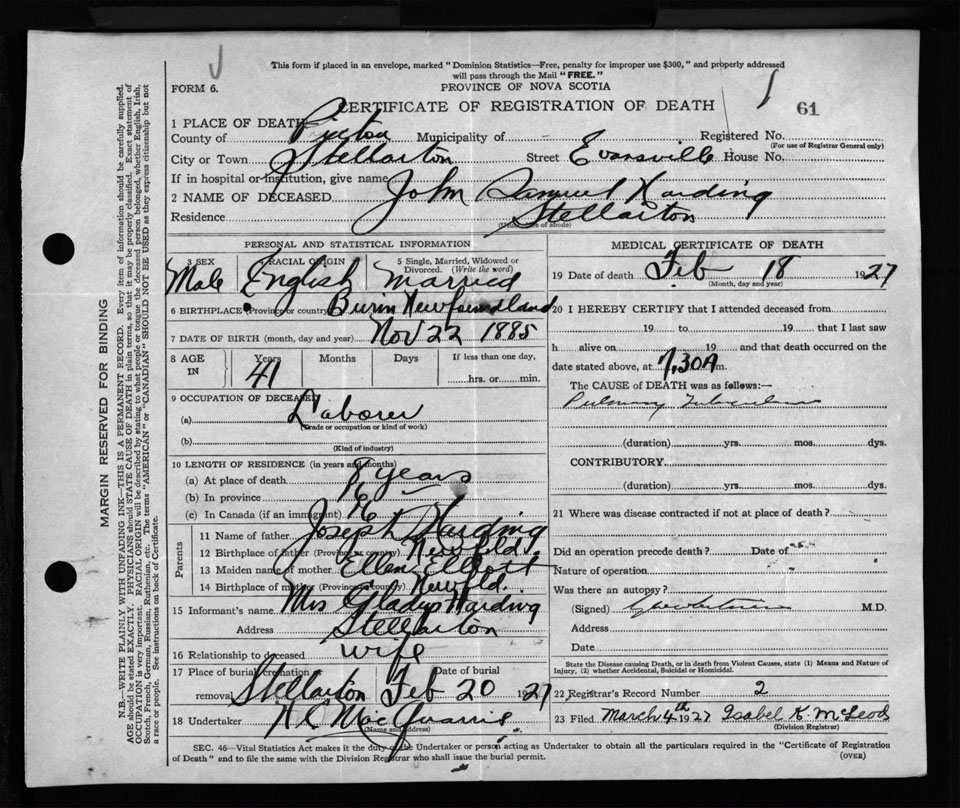 This form if placed in an envelope, marked "Dominion Statistics—Free, penalty for improper use $300," and properly addressed
will pass through the Mail "FREE."
FORM 6.
PROVINCE OF NOVA SCOTIA
CERTIFICATE OF REGISTRATION OF DEATH
61
1 PLACE OF DEATH
County of Pictou Municipality of Registered No.
(For use of Registrar General only)
City or Town Stellarton Street Evansville House No.
If in hospital or institution, give name
2 NAME OF DECEASED John Samuel Harding
Residence Stellarton
(Usual place of abode)
PERSONAL AND STATISTICAL INFORMATION
3 SEX Male
RACIAL ORIGIN English
5 Single, Married, Widowed or
Divorced. (Write the word)
Married
6 BIRTHPLACE (Province or country) Burin Newfoundland
7 DATE OF BIRTH (month, day and year) Nov 22 1885
8 AGE IN Years 41 Months Days If less than one day, hrs. or min.
9 OCCUPATION OF DECEASED
(a) Laborer
(Trade or occupation or kind of work)
(b)
(Kind of industry)
10 LENGTH OF RESIDENCE (in years and months)
(a) At place of death 8 years
(b) In province
(c) In Canada (if an immigrant)
Parents
11 Name of father Joseph Harding
12 Birthplace of father (Province or country) Newfld.
13 Maiden name of mother Ellen Elliott
14 Birthplace of mother (Province or country) Newfld
15 Informant's name Mrs Gladys Harding
Address Stellarton
16 Relationship to deceased wife
17 Place of burial, cremation Date of burial
removal Stellarton Feb 20 1927
18 Undertaker
(Name and address)
MEDICAL CERTIFICATE OF DEATH
19 Date of death Feb 18 1927
(Month, day and year)
20 I HEREBY CERTIFY that I attended deceased from
19 to 19 that I last saw
h alive on 19 and that death occurred on the
date stated above, at 7.30A m.
The CAUSE of DEATH was as follows:—
Pulmonary Tuberculosis
(duration) yrs. mos. dys.
CONTRIBUTORY
(duration) yrs. mos. dys.
21 Where was disease contracted if not at place of death?
Did an operation precede death? Date of
Nature of operation
Was there an autopsy?
(Signed) M.D.
Address
Date
State the Disease causing Death, or in death from Violent Causes, state (1) Means and Nature of
Injury, (2) whether Accidental, Suicidal or Homicidal.
22 Registrar's Record Number 2
23 Filed March 4th 1927 Isabel K McLeod
(Division Registrar)
SEC. 46—Vital Statistics Act makes it the duty of the Undertaker or person acting as Undertaker to obtain all the particulars required in the "Certificate of Registration
of Death" and to file the same with the Division Registrar who shall issue the burial permit.
(OVER)
MARGIN RESERVED FOR BINDING
N.B.—WRITE PLAINLY WITH UNFADING INK—THIS IS A PERMANENT RECORD. Every item of information should be carefully supplied.
AGE should be stated EXACTLY. PHYSICIANS should STATE CAUSE OF DEATH in plain terms, so that it may be properly classified. Exact statement of
OCCUPATION is very important. RACIAL ORIGIN will be described by stating to what people or tongue the deceased person belonged, whether English, Irish,
Scotch, French, German, Russian, Ruthenian, etc. The terms "AMERICAN" or "CANADIAN" SHOULD NOT BE USED as they express citizenship but not
a race or people. See instructions on back of Certificate.